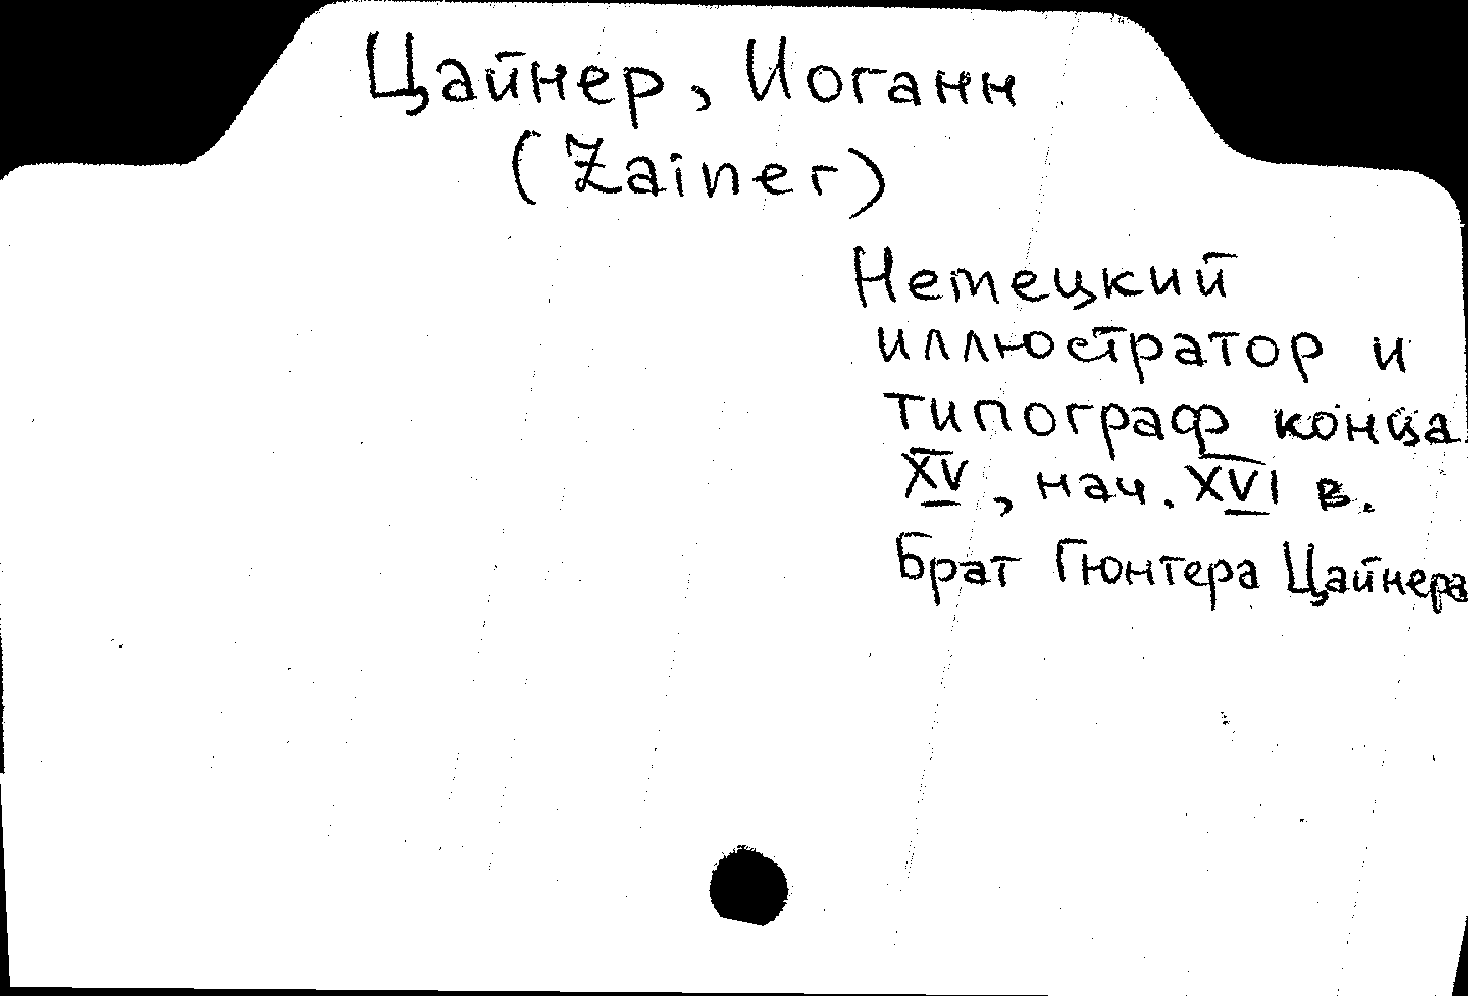 Цайнер, Иоганн
(Zainer)
Немецкий
иллюстратор и
типограф конца
XV, нач. XVI в.
Брат Гюнтера Цайнера